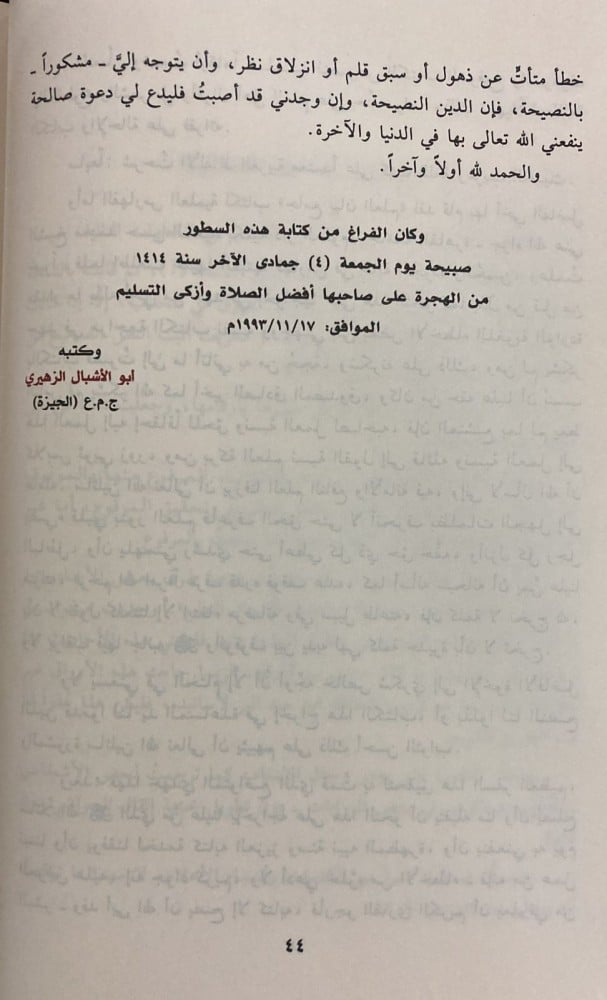 خطأ متأتٍّ عن ذهول أو سبق قلم أو انزلاق نظر، وأن يتوجه إليَّ ـ مشكوراً ـ
بالنصيحة، فإن الدين النصيحة، وإن وجدني قد أصبتُ فليدع لي دعوة صالحة
ينفعني الله تعالى بها في الدنيا والآخرة.
والحمد لله أولاً وآخراً.
وكان الفراغ من كتابة هذه السطور
صبيحة يوم الجمعة (٤) جمادى الآخر سنة ١٤١٤
من الهجرة على صاحبها أفضل الصلاة وأزكى التسليم
الموافق: ١٩٩٣/١١/١٧م
وكتبه
أبو الأشبال الزهيري
ج.م.ع (الجيزة)
٤٤